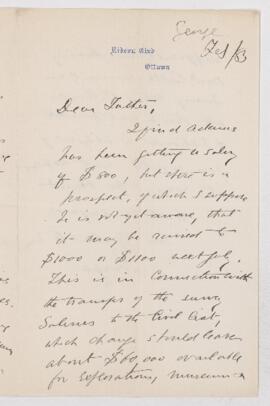 George
Feb /83
Rideau Club
Ottawa
Dear Father,
I find Adams
has been getting a salary
of $800, but there is a
prospect, of which I suppose
he is not yet aware, that
it may be raised to
$1000 or $1100 next July.
This is in Connection with
the transfer of the survey
Salaries to the Civil List,
which change should leave
about $60,000 available
for explorations, museum &